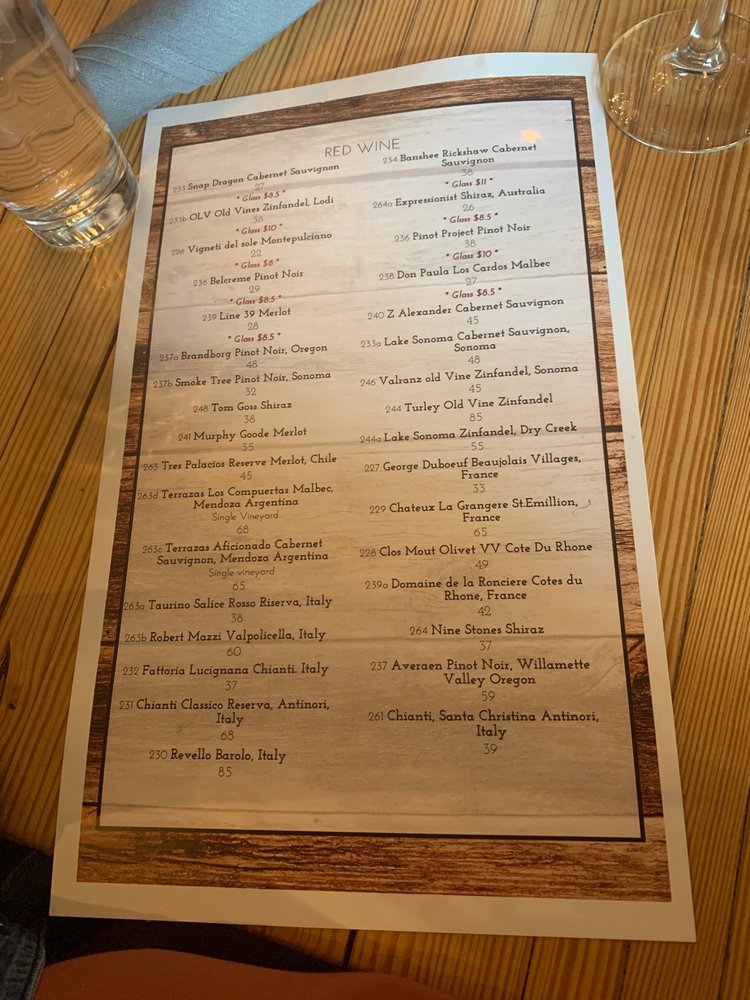 RED WINE
233 Snap Dragon Cabernet Sauvignon
27
* Glass $8.5 *
233b OLV Old Vines Zinfandel, Lodi
38
* Glass $10 *
226 Vigneti del sole Montepulciano
22
* Glass $8 *
236 Belcreme Pinot Noir
29
* Glass $8.5 *
239 Line 39 Merlot
28
* Glass $8.5 *
237a Brandborg Pinot Noir, Oregon
48
237b Smoke Tree Pinot Noir, Sonoma
32
248 Tom Goss Shiraz
38
241 Murphy Goode Merlot
35
263 Tres Palacios Reserve Merlot, Chile
45
263d Terrazas Los Compuertas Malbec,
Mendoza Argentina
Single Vineyard
68
263c Terrazas Aficionado Cabernet
Sauvignon, Mendoza Argentina
Single vineyard
65
263a Taurino Salice Rosso Riserva, Italy
38
263b Robert Mazzi Valpolicella, Italy
60
232 Fattoria Lucignana Chianti. Italy
37
231 Chianti Classico Reserva, Antinori,
Italy
68
230 Revello Barolo, Italy
85
234 Banshee Rickshaw Cabernet
Sauvignon
38
* Glass $11 *
264a Expressionist Shiraz, Australia
26
* Glass $8.5 *
236 Pinot Project Pinot Noir
38
* Glass $10 *
238 Don Paula Los Cardos Malbec
27
* Glass $8.5 *
240 Z Alexander Cabernet Sauvignon
45
233a Lake Sonoma Cabernet Sauvignon,
Sonoma
48
246 Valranz old Vine Zinfandel, Sonoma
45
244 Turley Old Vine Zinfandel
85
244a Lake Sonoma Zinfandel, Dry Creek
55
227 George Duboeuf Beaujolais Villages,
France
33
229 Chateux La Grangere St.Emillion,
France
65
228 Clos Mout Olivet VV Cote Du Rhone
49
239a Domaine de la Ronciere Cotes du
Rhone, France
42
264 Nine Stones Shiraz
37
237 Averaen Pinot Noir, Willamette
Valley Oregon
59
261 Chianti, Santa Christina Antinori,
Italy
39